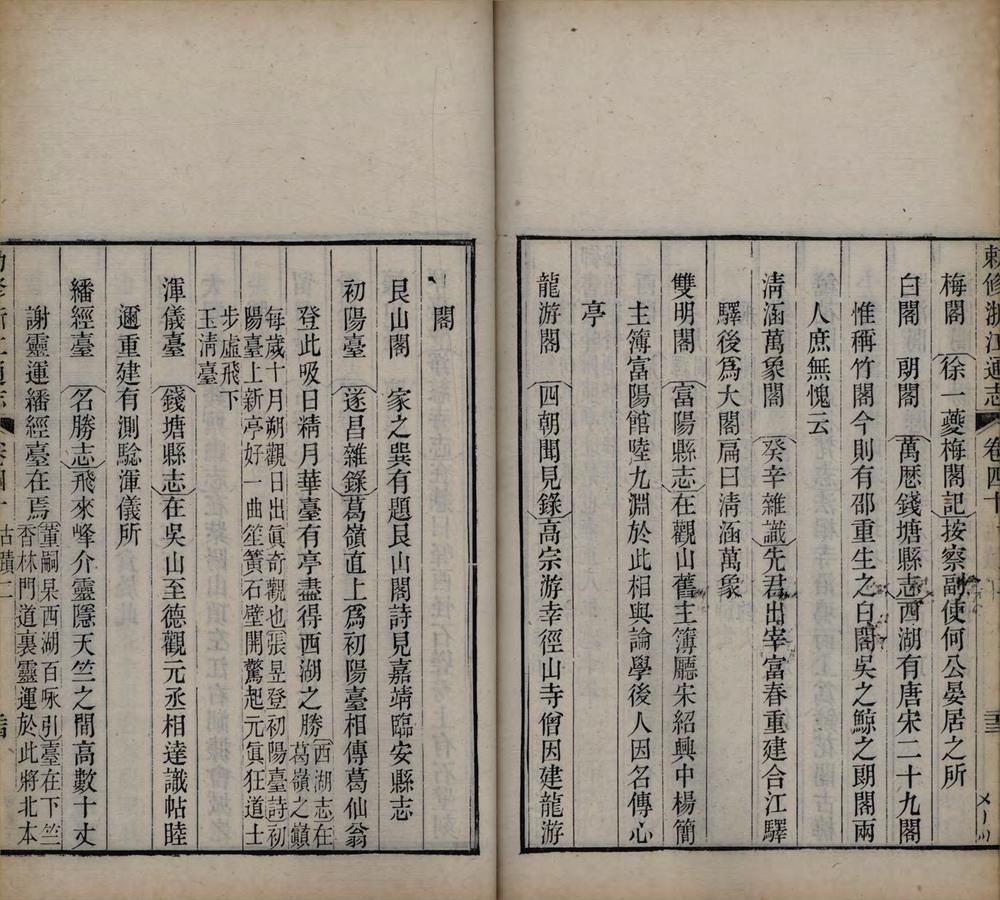 敕修浙江通志 卷四十
梅閣 徐一夔梅閣記按察副使何公晏居之所
白閣 朙閣 萬厯錢塘縣志西湖有唐宋二十九閣
惟稱竹閣今則有邵重生之白閣吳之鯨之朙閣兩
人庶無愧云
淸涵萬象閣 癸辛雜識先君出宰富春重建合江驛
驛後爲大閣扁曰淸涵萬象
雙明閣 富陽縣志在觀山舊主簿廳宋紹興中楊簡
主簿富陽館陸九淵於此相與論學後人因名傳心
亭
龍游閣 四朝聞見錄高宗游幸徑山寺僧因建龍游
閣
艮山閣 家之巽有題艮山閣詩見嘉靖臨安縣志
初陽臺 遂昌雜錄葛嶺直上爲初陽臺相傳葛仙翁
登此吸日精月華臺有亭盡得西湖之勝西湖志在
葛嶺之巔
每歲十月朔觀日出眞奇觀也張昱登初陽臺詩初
陽臺上新亭好一曲笙簧石壁開驚起元眞狂道士
步虛飛下
玉淸臺
渾儀臺 錢塘縣志在吳山至德觀元丞相達識帖睦
邇重建有測騐渾儀所
繙經臺 名勝志飛來峰介靈隱天竺之間高數十丈
謝靈運繙經臺在焉董嗣杲西湖百咏引臺在下竺
香林門道裏靈運於此將北本
古蹟二